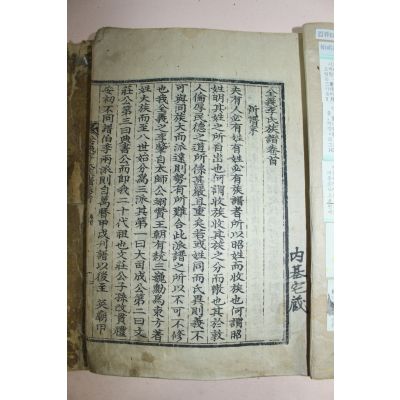 全義李氏族譜卷首
新譜序
夫有人必有姓有姓必有族譜者所以昭姓而收族也何謂昭
姓明其姓之所自出也何謂收族收其族之分而散也其於敦
人倫厚民德之道所係其嚴且重矣若或姓同而氏異則義不
可與同族大而派遠則勢有所難合此派譜之所以不可不修
也我全義之李肇自太師公翊贊王朝有統三巍勳爲東方著
姓大族而至八世始分爲三派其第一曰大司成公第二曰文
莊公第三曰典書公而卽我二十代祖也文莊公子孫改貫禮
安初不同譜伯季兩派則自萬曆甲戌刊譜以後至 英廟甲
內基宅藏